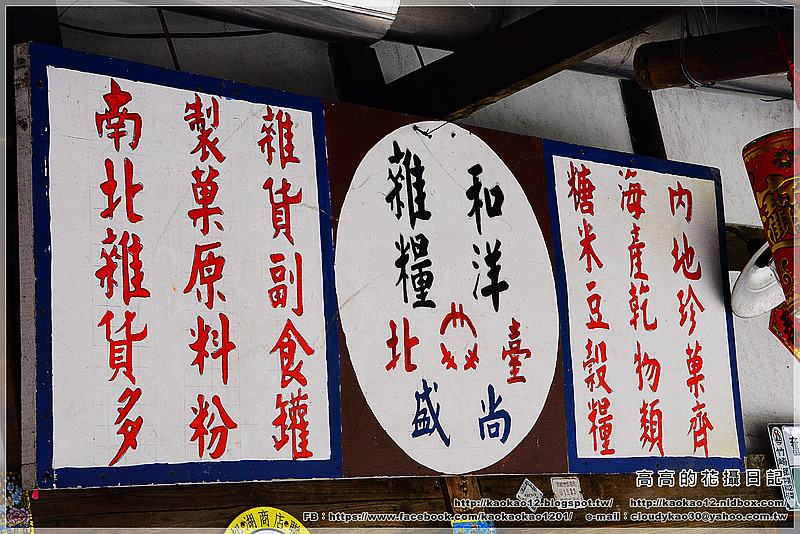 内地珍菓齊
海產乾物類
糖米豆穀糧
和洋
雜糧
臺北
尚盛
雜貨副食罐
製菓原料粉
南北雜貨多
湖商店
高高的花攝日記
http://kaokao12.blogspot.tw/ http://kaokao12.nidbox.com/
FB：https://www.facebook.com/kaokaokao1201/ e-mail：cloudykao30@yahoo.com.tw